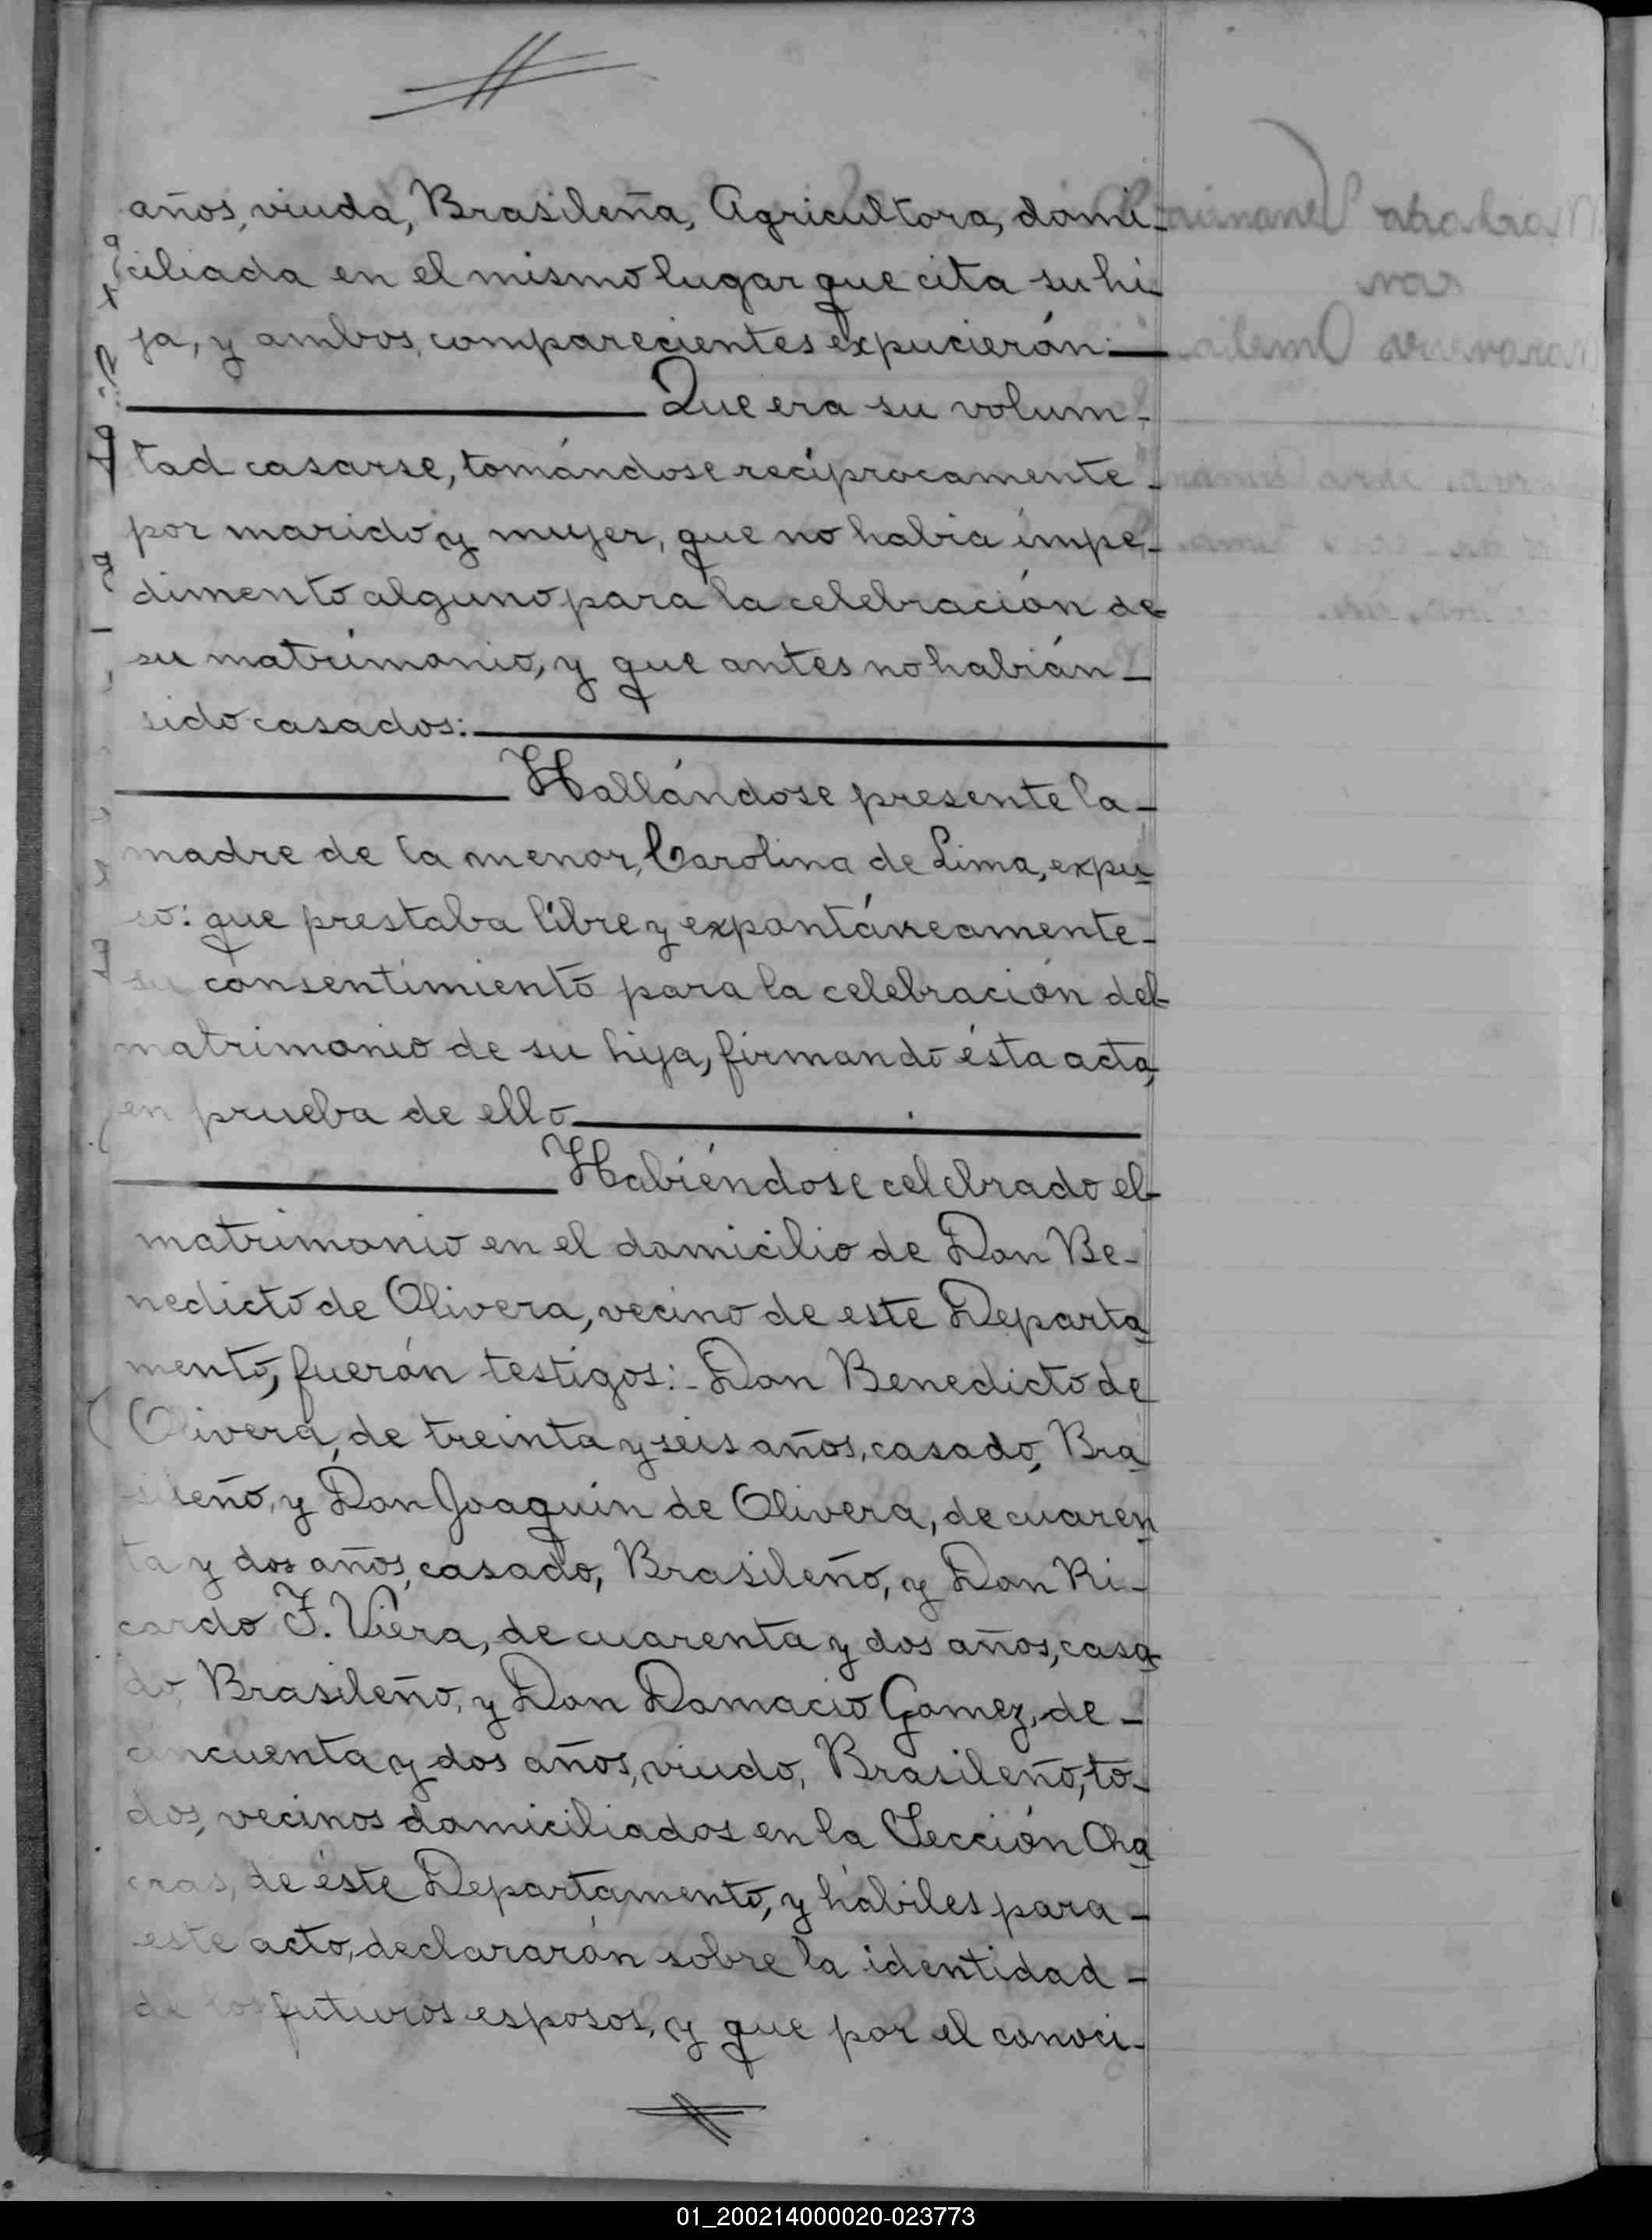 años, viuda, Brasileña, Agricultora, domi-
ciliada en el mismo lugar que cita su hi-
ja, y ambos, comparecientes expucierón:
Que era su volum-
tad casarse, tomándose reciprocamente
por marido y mujer, que no habia impe-
dimento alguno para la celebración de
su matrimonio, y que antes no habián
sido casados:
Hallándose presente la
madre de la menor, Carolina de Lima, expu
so: que prestaba libre y expontáneamente
su consentimiento para la celebración del
matrimonio de su hija, firmando ésta acta,
en prueba de ello
Habiéndose celebrado el
matrimonio en el domicilio de Don Be-
nedicto de Olivera, vecino de este Departa
mento, fuerón testigos: Don Benedicto de
Olivera, de treinta y seis años, casado, Bra
sileño, y Don Joaquin de Olivera, de cuaren
ta y dos años, casado, Brasileño, y Don Ri-
cardo F. Viera, de cuarenta y dos años, casa
do, Brasileño, y Don Damacio Gomez, de
cincuenta y dos años, viudo, Brasileño, to-
dos, vecinos domiciliados en la Sección Cha
cras, de éste Departamento, y hábiles para
este acto, declararán sobre la identidad
de los futuros esposos, y que por el conoci-
01_200214000020-023773